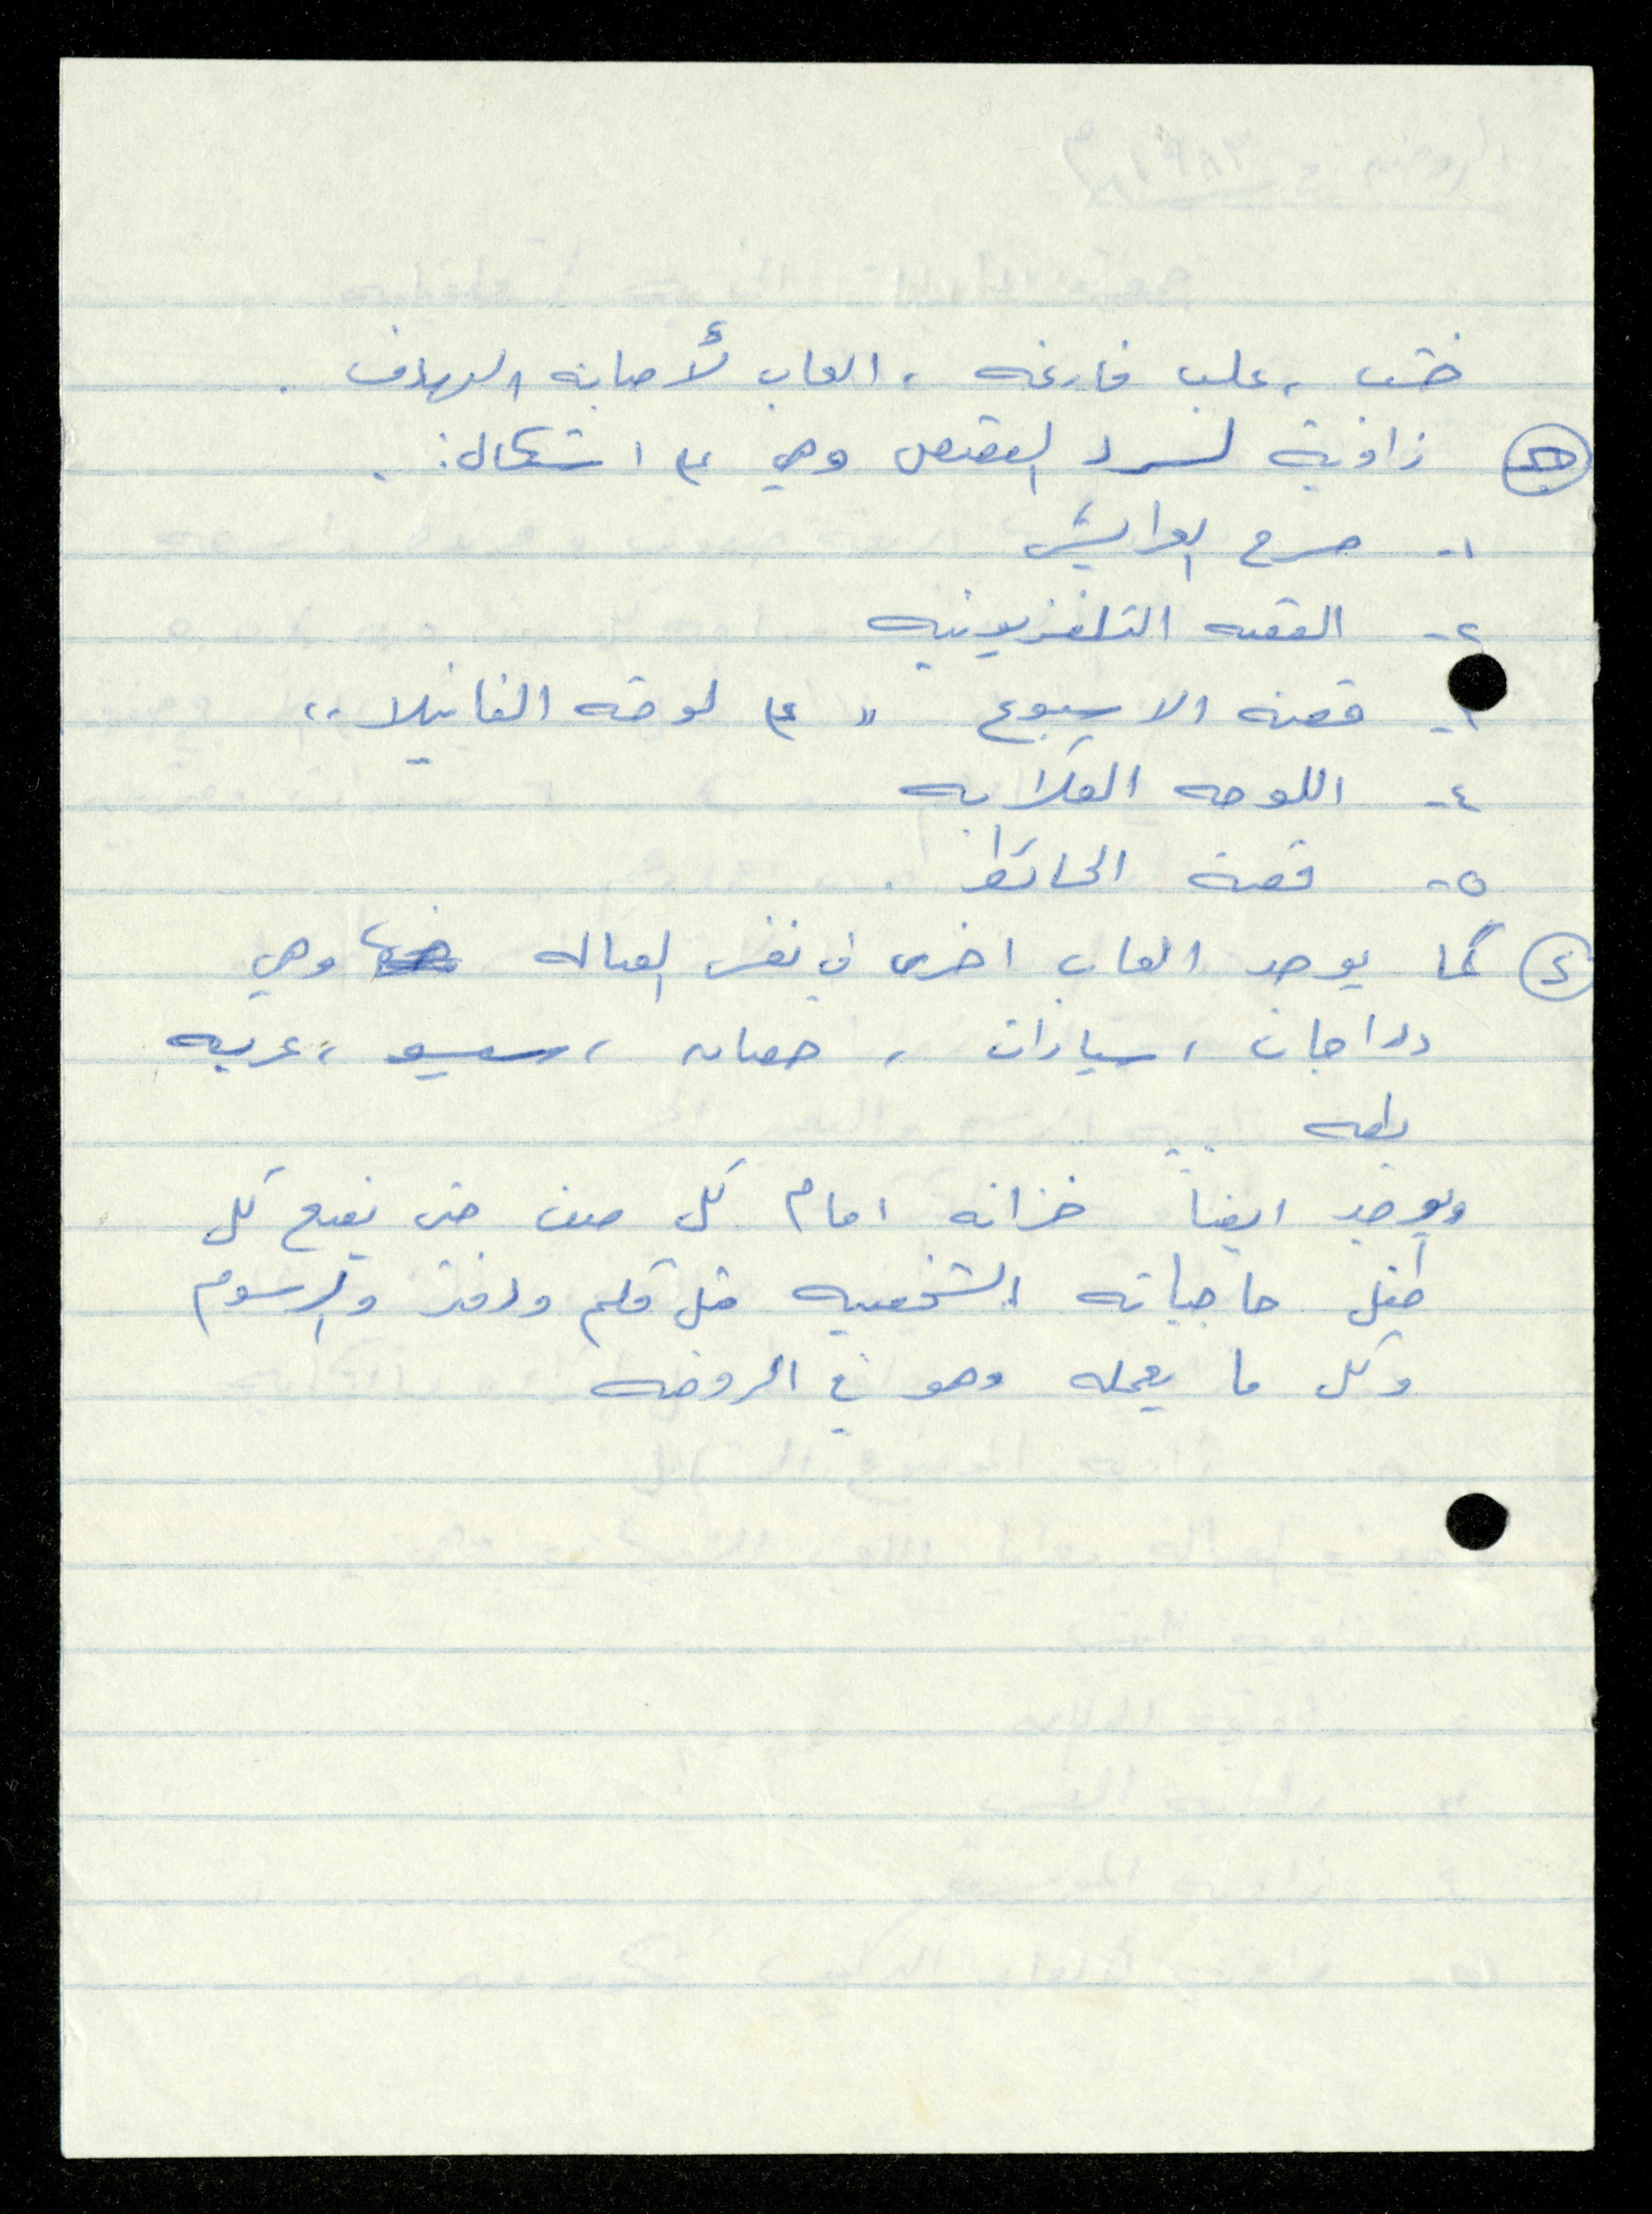 خشب ، علب فارغه ، العاب لأصابة الهدف .
زاوية لسرد القصص وهي ٤ اشكال :
١- مسرح العرايس
٢- القصه التلفزيونيه
٣- قصة الاسبوع " ع لوحة الفانيلا "
٤- اللوحه القلابه
٥- قصة الحائط .
كما يوجد العاب اخرى في نفس الصاله وهي
دراجات ، سيارات ، حصان ، سيسو ، عربه
بطه
ويوجد ايضاً خزانه امام كل صف حتى يضع كل
طفل حاجياته الشخصيه مثل قلم ودفتر والرسوم
وكل ما يعمله وهو في الروضه